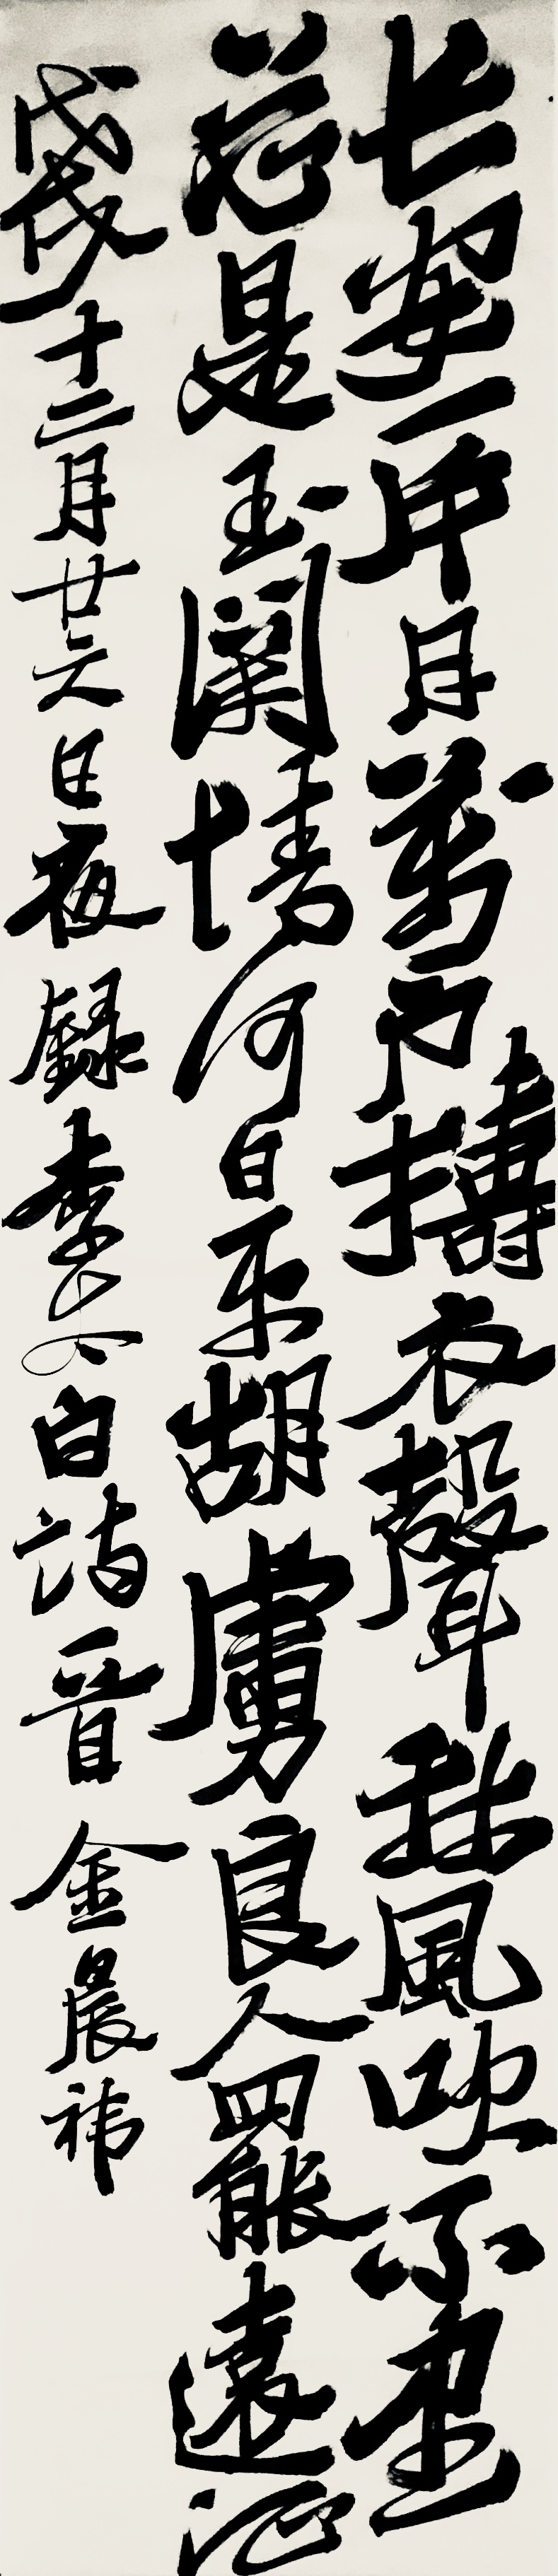 长安一片月萬户擣衣聲秋風吹不盡
總是玉關情何日平胡虜良人罷遠征
戊戌十二月廿六日夜録李太白詩晉 金晨祎